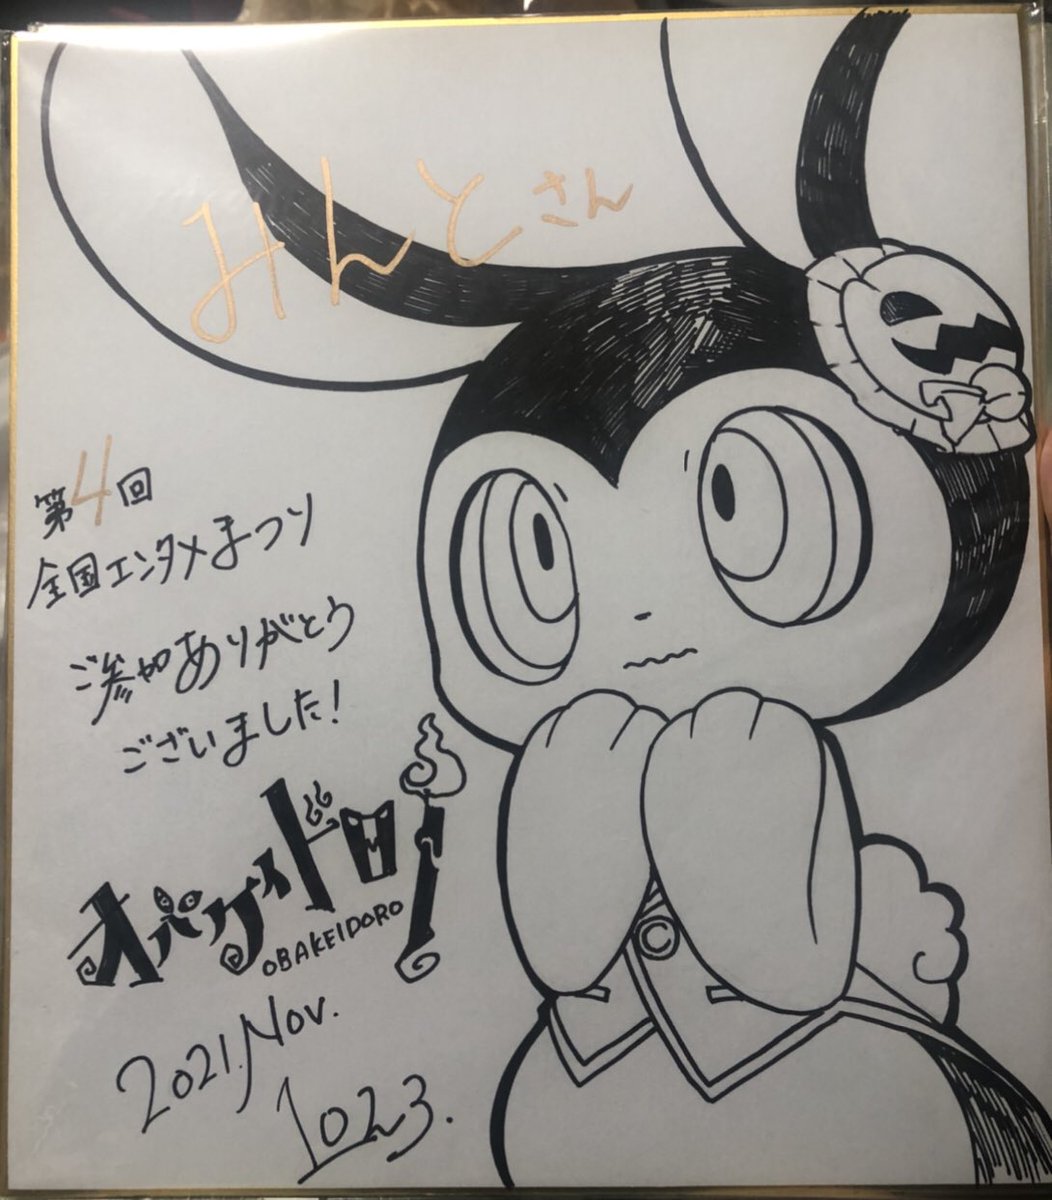 みんとさん
第4回
全国エンタメまつり
ご参加ありがとう
ございました!
オバケイドロ!
OBAKEIDORO
2021.Nov.
1023.